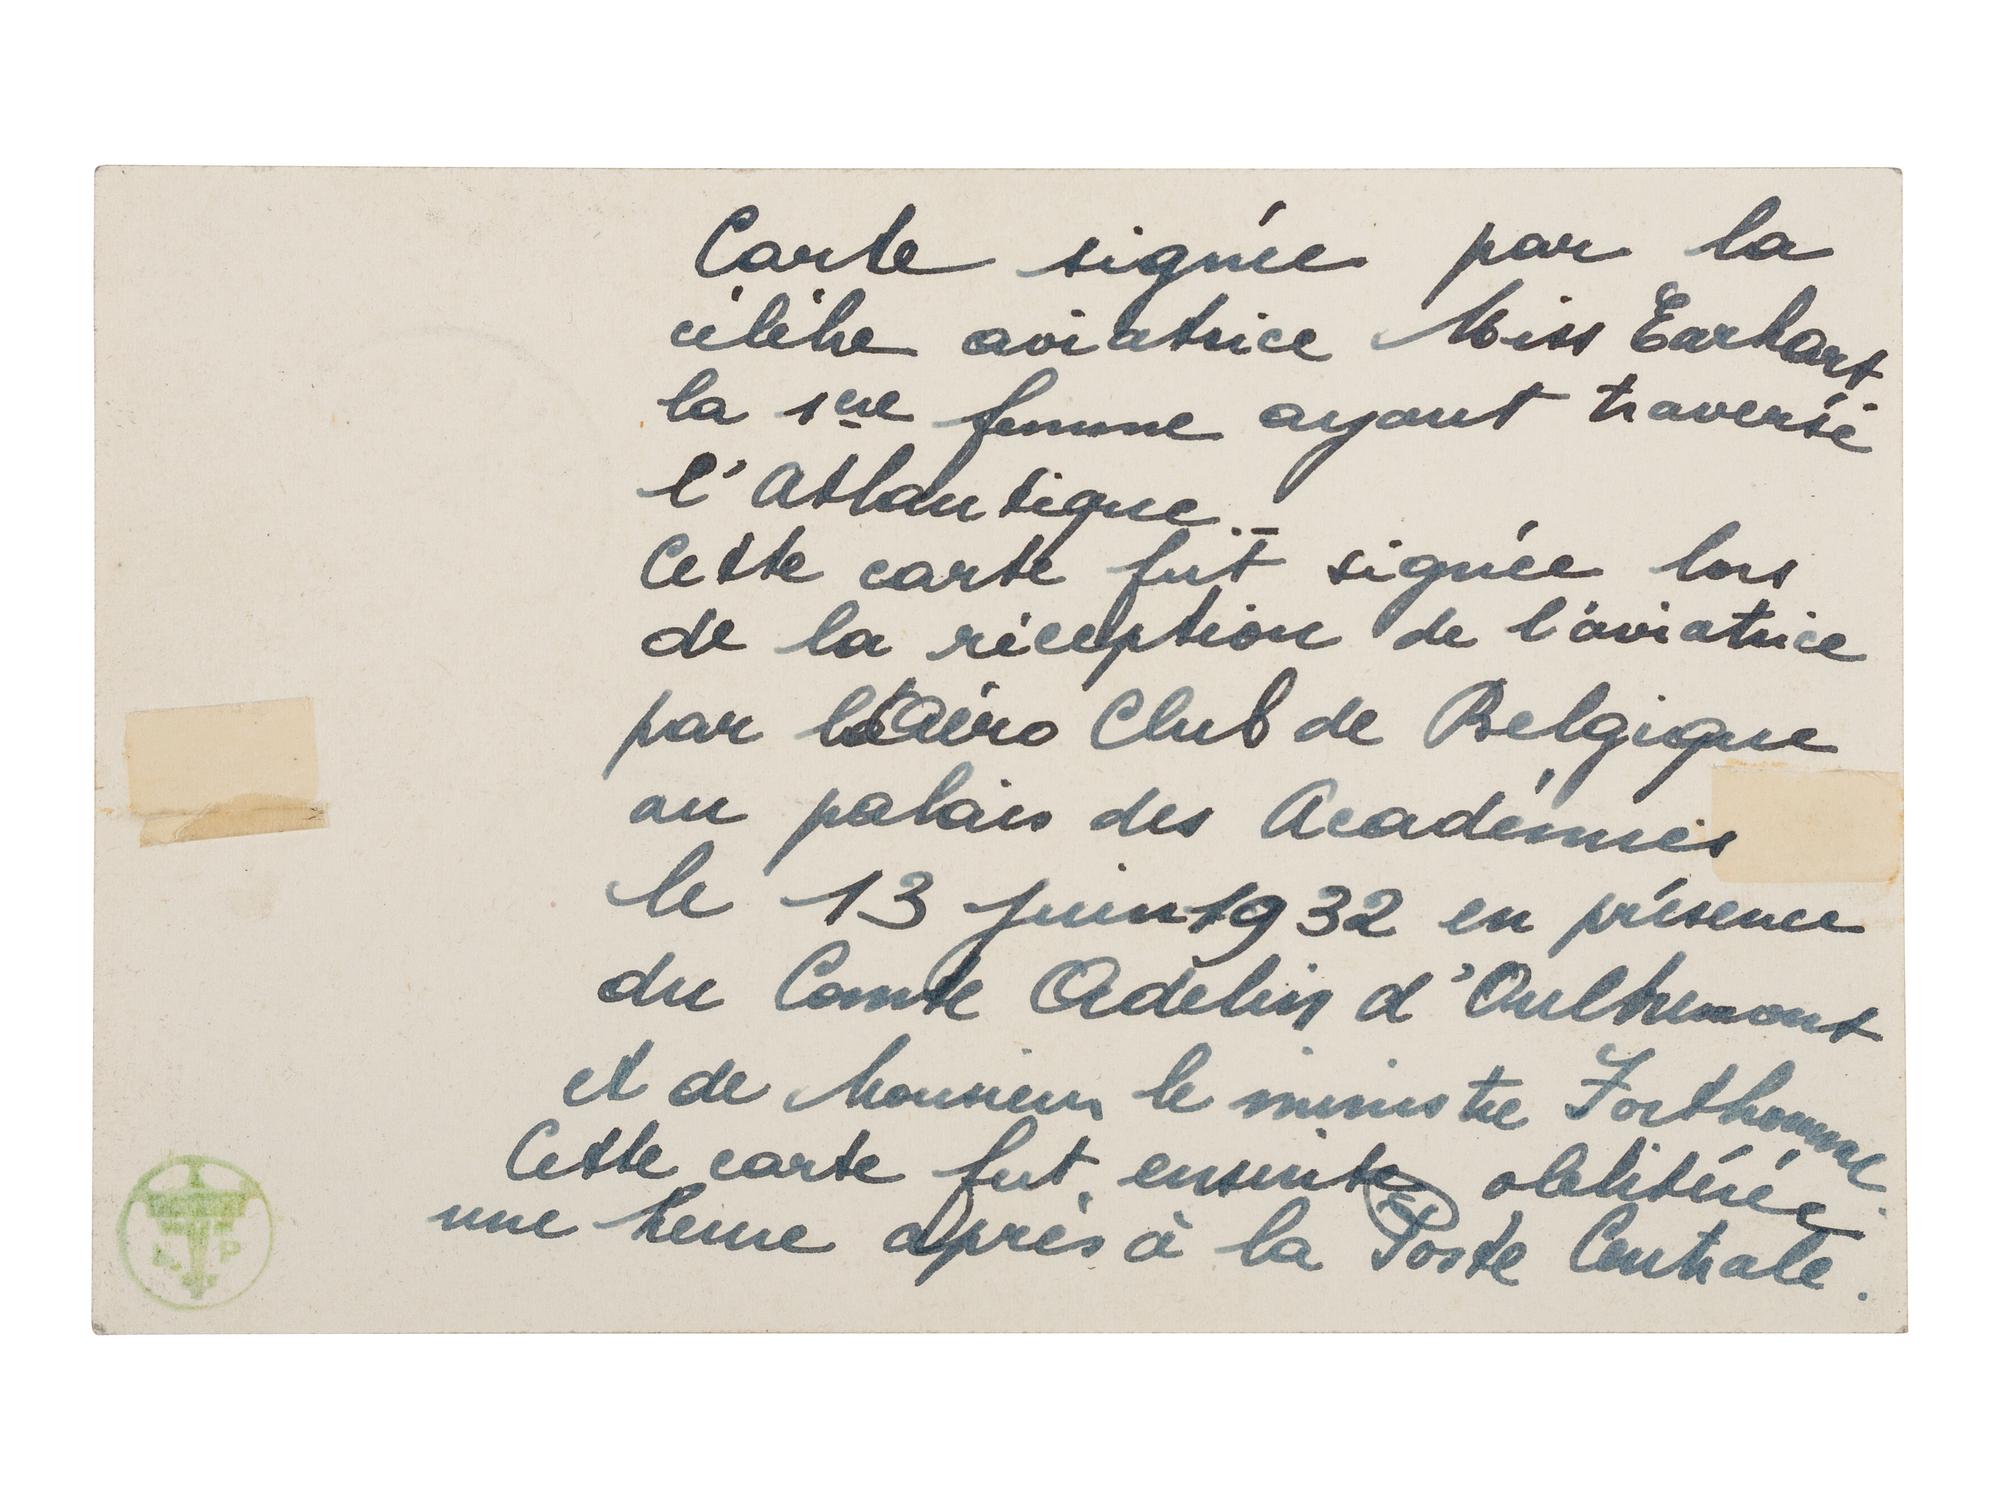 Carte signée par la
célèbre aviatrice Miss Earhart
la 1ere femme ayant traversé
l'Atlantique._
Cette carte fut signée lors
de la réception de l'aviatrice
par l'Aéro Club de Belgique
au palais des Académies
le 13 juin 1932 en présence
du Comte Adelin d'Oultremont
et de Monsieur le ministre Forthomme.
Cette carte fut ensuite oblitérée
une heure après à la Poste Centrale.
P